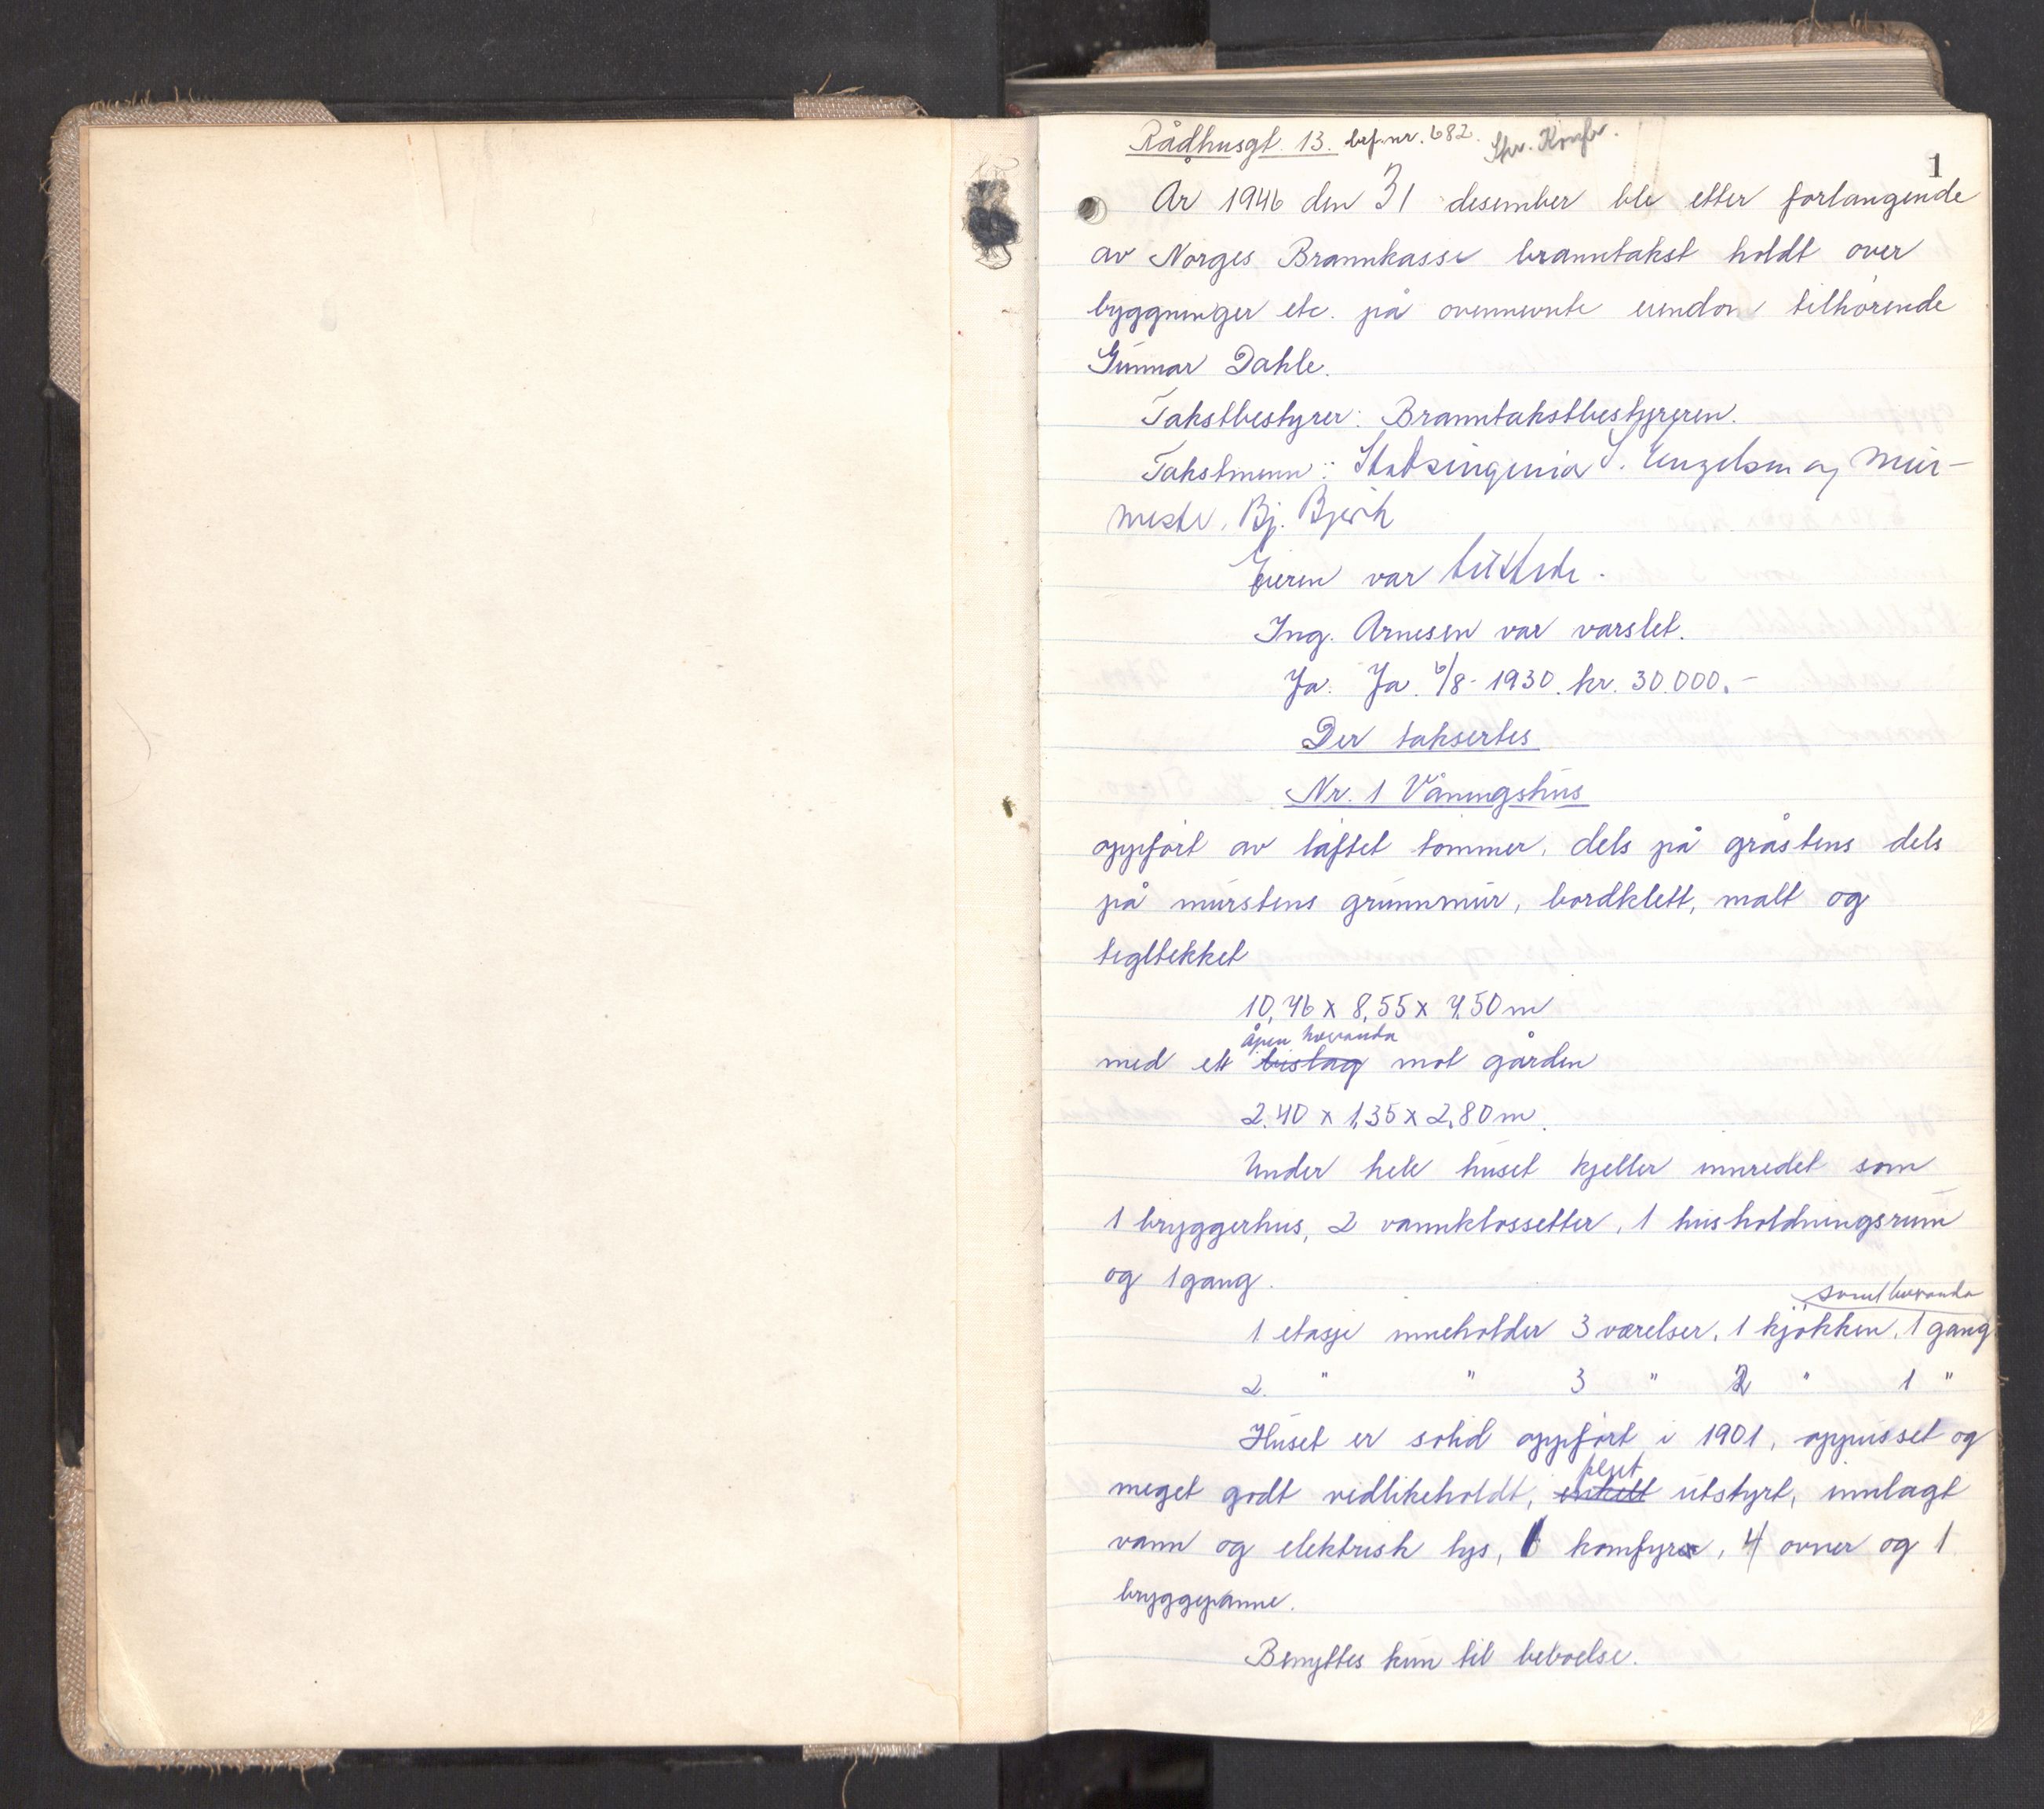 Rådhusgt. 13. brf.nr. 682. Skr. Konfr.
1
År 1946 den 31 desember ble etter forlangende
av Norges Brannkasse branntakst holdt over
byggninger etc. på ovennevnte eiendom tilhørende
Gunnar Dahle.
Takstbestyrer: Branntakstbestyreren.
Takstmenn: Stadsingeniør S. Engelsen og Mur-
mester, Bj.
Eieren var tilstede.
Ing. Arnesen var varslet.
Ja. Ja. 6/8- 1930. kr. 30.000.-
Der takseres
Nr. 1 Våningshus
oppført av laftet tømmer, dels på gråstens dels
på murstens grunnmur, bordklett, malt og
tegltekket
10,46 x 8,55 x 7,50 m
åpen veranda
med ett bislag mot gården
2.40 x 1,35 x 2,80 m.
Under hele huset kjeller innredet som
1 bryggerhus, 2 vannklossetter, 1 husholdningsrum
og 1 gang.
samt veranda
1 etasje inneholder 3 værelser, 1 kjøkken, 1 gang
2. " " 3 " 2 " 1 "
Huset er solid oppført i 1901, oppusset og
pent
meget godt vedlikeholdt, enkelt utstyrt, innlagt
vann og elektrisk lys, 1 komfyr, 4 ovner og 1
bryggepanne.
Benyttes kun til beboelse.